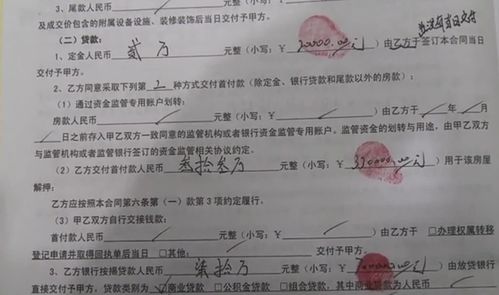 3、尾款人民币 元整（小写：¥
及成交价包含的附属设备设施、装修装饰后当日交付予甲方。
当日交付
（二）贷款：
1、定金人民币 贰万 元整（小写：¥ 20000.00元 ）由乙方于签订本合同当日
交付予甲方。
2、乙方同意采取下列第 2 种方式交付首付款（除定金、银行贷款和尾款以外的房款）：
（1）通过资金监管专用账户划转：
房款人民币 元整（小写：¥ ）由乙方于 年 月
日之前存入甲乙双方一致同意的监管机构或者银行资金监管专用账户。监管资金的划转与用途，由甲乙双方
与监管机构或者监管银行签订的资金监管相关协议约定。
（2）乙方交付首付款人民币 叁拾叁万 元整（小写：¥ 330000.00元 ）用于该房屋
解押：
乙方应按照本合同第六条第（一）款第3项约定履行。
（3）甲乙双方自行交接钱款：
首付款人民币 元整（小写：¥ ）由乙方于 □办理权属转移
登记申请并取得回执单后当日 □其他： 交付予甲方。
3、乙方银行按揭贷款人民币 柒拾万 元整（小写：¥ 700000.00元 ）由放贷银行
直接交付予甲方，贷款类别为 商业贷款 □公积金贷款 □组合贷款，其中商业贷款为人民币